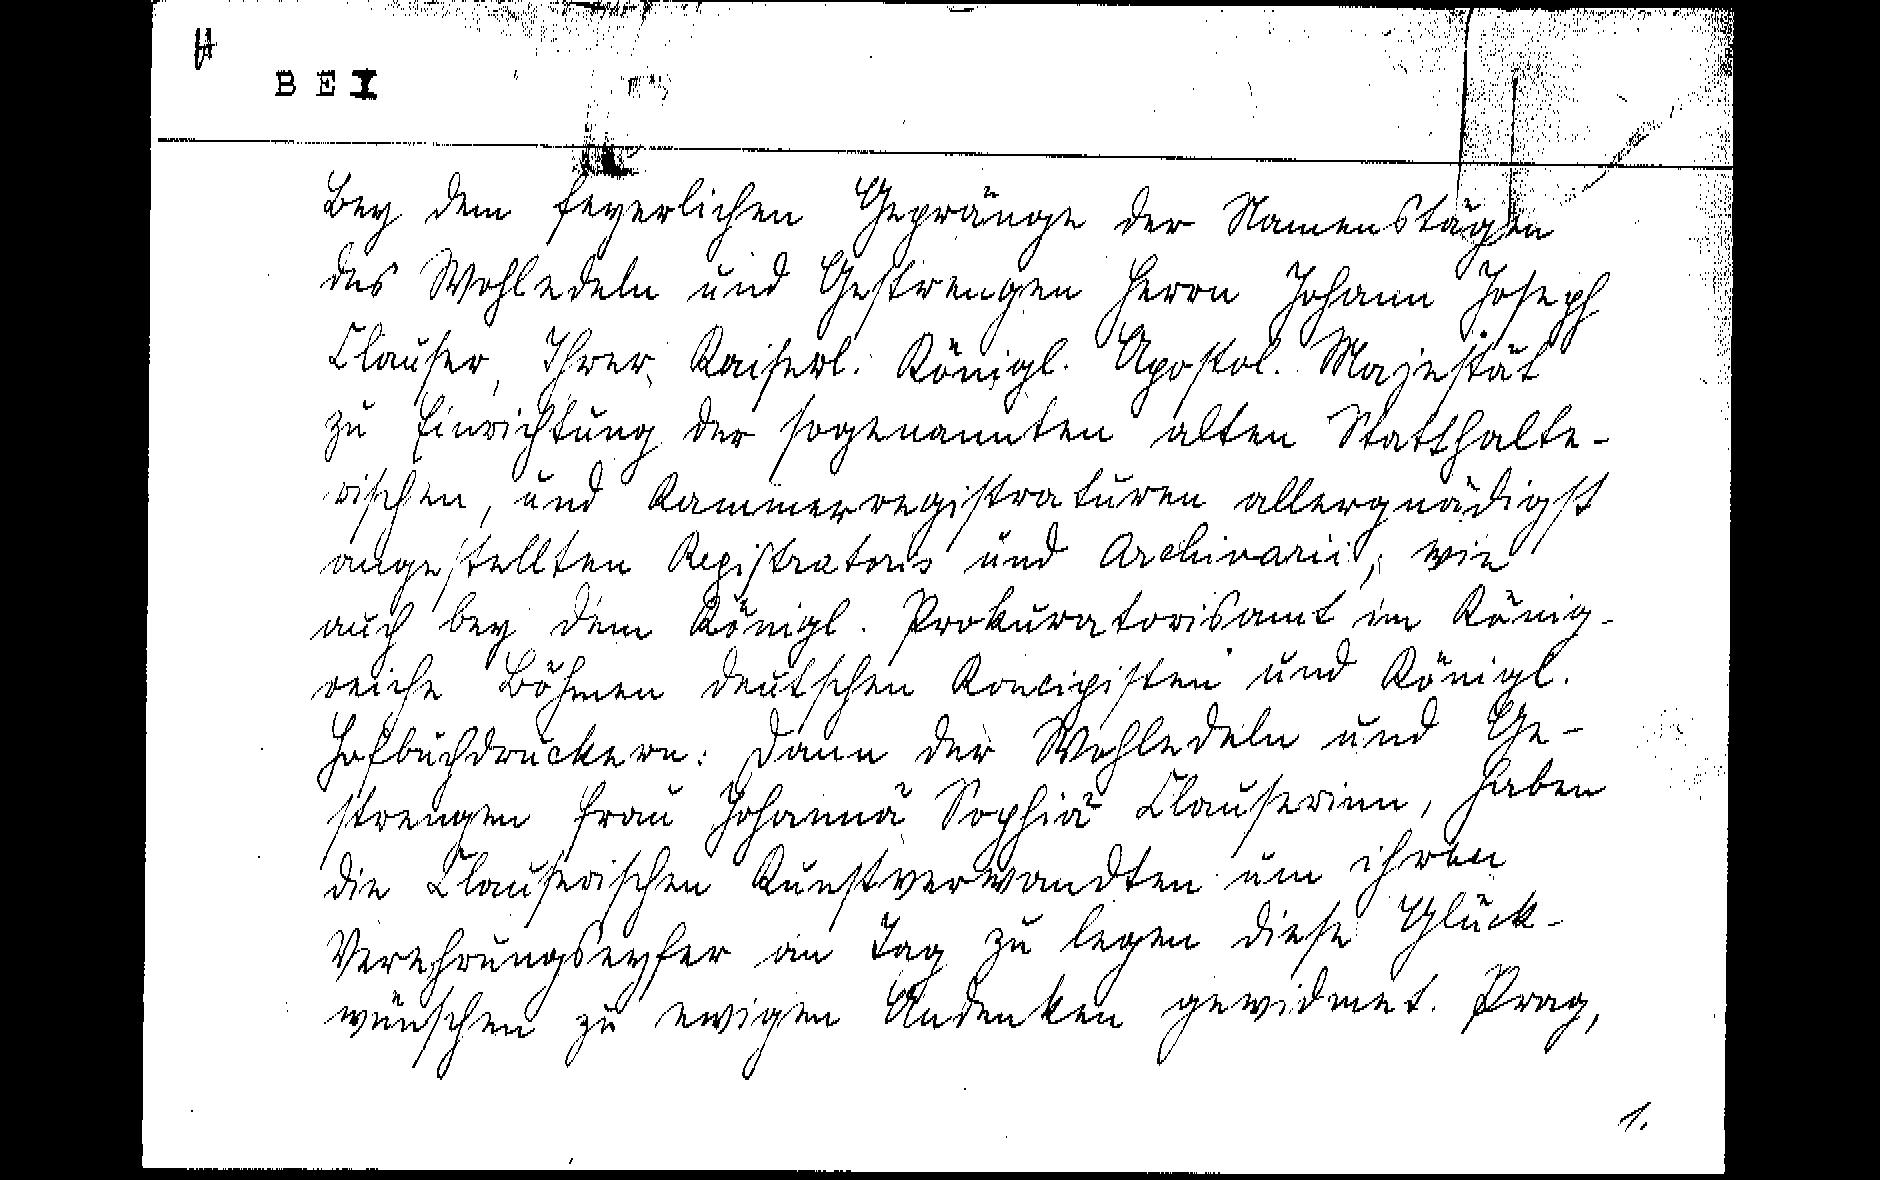 BEI
Bey dem feyerlichen Gepränge der Namenstägen
des Wohledeln und Gestrengen Herrn Johann Joseph
Clauser, Ihrer Kaiserl. Königl. Apostol. Majestät
zu Einrichtung der sogenannten alten Statthalte-
rischen, und Kammerregistraturen allergnädigst
angestellten Registratoris und Archivarii, wie
auch bey dem Königl. Prokuratorisamt im König-
reiche Böhmen deutschen Koncipisten und Königl.
Hofbuchdruckern: Dann der Wohledeln und Ge-
strengen Frau Johannä Sophiä Clauserinn, haben
die Clauserischen Kunstverwandten um ihren
Verehrungseyfer an Tag zu legen diese Glück-
wünschen zu ewigen Andenken gewidmet. Prag,
1.